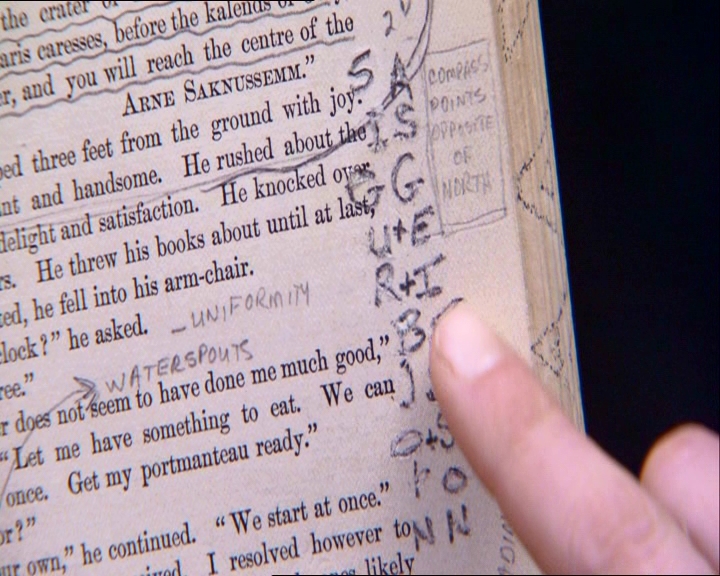 the crater
aris caresses, before the kalends
er, and you will reach the centre of the
ARNE SAKNUSSEMM."
ped three feet from the ground with joy.
nt and handsome. He rushed about the
delight and satisfaction. He knocked over
rs. He threw his books about until at last,
ted, he fell into his arm-chair.
lock?" he asked.
-UNIFORMITY
ree."
WATERSPOUTS
r does not seem to have done me much good,"
"Let me have something to eat. We can
once. Get my portmanteau ready."
or?"
ur own," he continued. "We start at once."
I resolved however to
likely
S A
I S
G G
U+E
R+I
B
O+S
O
N N
COMPASS
POINTS
OPPOSITE
OF
NORTH